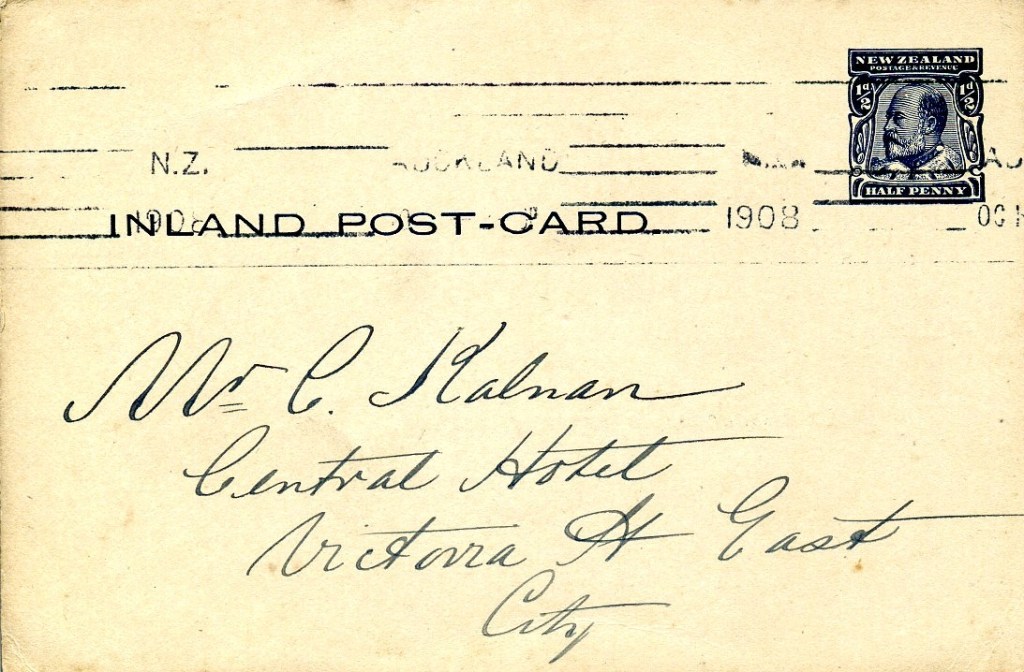 NEW ZEALAND
POSTAGE & REVENUE
½d ½d
HALF PENNY
N.Z. AUCKLAND
1908 1908
INLAND POST-CARD.
Mr C. Kalnan
Central Hotel
Victoria St East
City